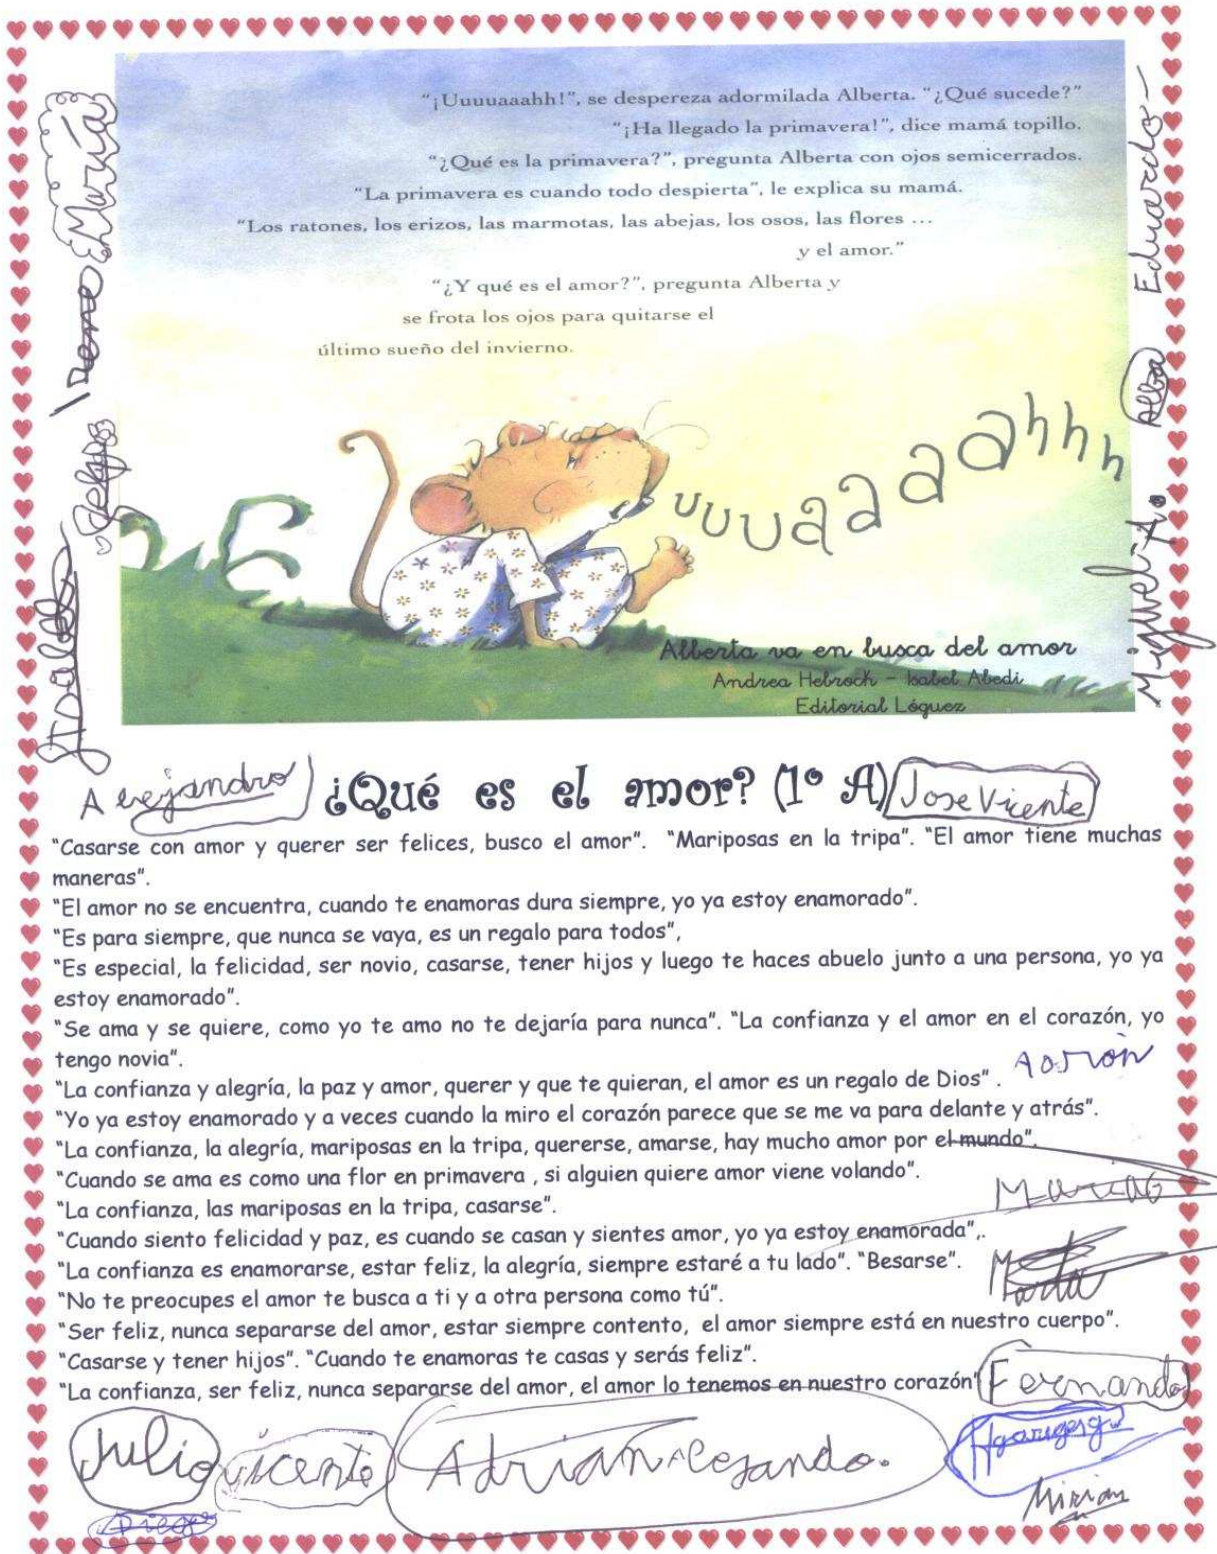 “¡Uuuuaaahh!”, se despereza adormilada Alberta. “¿Qué sucede?”
“¡Ha llegado la primavera!”, dice mamá topillo.
“¿Qué es la primavera?”, pregunta Alberta con ojos semicerrados.
“La primavera es cuando todo despierta”, le explica su mamá.
“Los ratones, los erizos, las marmotas, las abejas, los osos, las flores ...
y el amor.”
“¿Y qué es el amor?”, pregunta Alberta y
se frota los ojos para quitarse el
último sueño del invierno.
María
Irene
Eduardo
Alba
Miguelito
uuuuaaaaahhh
Alberta va en busca del amor
Andrea Hebrock - Isabel Abedi
Editorial Lóguez
Alejandro
¿Qué es el amor? (1º A)
Jose Vicente
“Casarse con amor y querer ser felices, busco el amor”. “Mariposas en la tripa”. “El amor tiene muchas
maneras”.
“El amor no se encuentra, cuando te enamoras dura siempre, yo ya estoy enamorado”.
“Es para siempre, que nunca se vaya, es un regalo para todos”,
“Es especial, la felicidad, ser novio, casarse, tener hijos y luego te haces abuelo junto a una persona, yo ya
estoy enamorado”.
“Se ama y se quiere, como yo te amo no te dejaría para nunca”. “La confianza y el amor en el corazón, yo
tengo novia”.
“La confianza y alegría, la paz y amor, querer y que te quieran, el amor es un regalo de Dios” .
“Yo ya estoy enamorado y a veces cuando la miro el corazón parece que se me va para delante y atrás”.
“La confianza, la alegría, mariposas en la tripa, quererse, amarse, hay mucho amor por el mundo”.
“Cuando se ama es como una flor en primavera , si alguien quiere amor viene volando”.
“La confianza, las mariposas en la tripa, casarse”.
“Cuando siento felicidad y paz, es cuando se casan y sientes amor, yo ya estoy enamorada”,.
“La confianza es enamorarse, estar feliz, la alegría, siempre estaré a tu lado”. “Besarse”.
“No te preocupes el amor te busca a ti y a otra persona como tú”.
“Ser feliz, nunca separarse del amor, estar siempre contento, el amor siempre está en nuestro cuerpo”.
“Casarse y tener hijos”. “Cuando te enamoras te casas y serás feliz”.
“La confianza, ser feliz, nunca separarse del amor, el amor lo tenemos en nuestro corazón”
Fernando
Julio
vicente
Adrián
Diego
Mirian